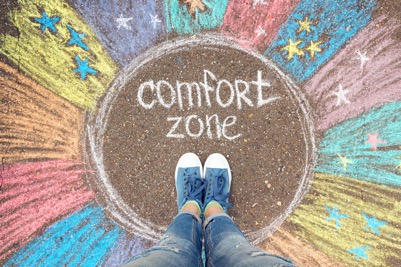 comfort
zone